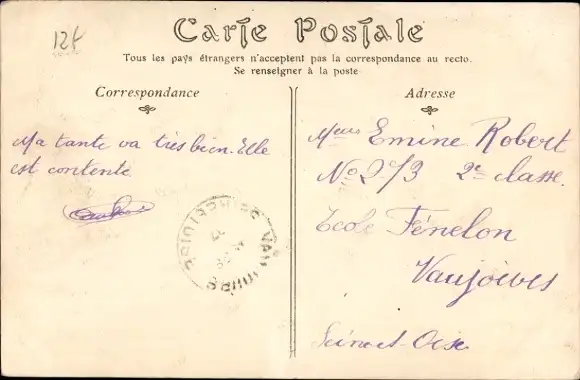 12f
Carte Postale
Tous les pays étrangers n'acceptent pas la correspondance au recto.
Se renseigner à la poste
Correspondance
Ma tante va très bien. Elle
est contente
Adresse
Emine Robert
No 273 2e classe
Ecole Fénelon
Vaujoues
Seine-et-Oise
VAUJOURS
SEINE ET OISE